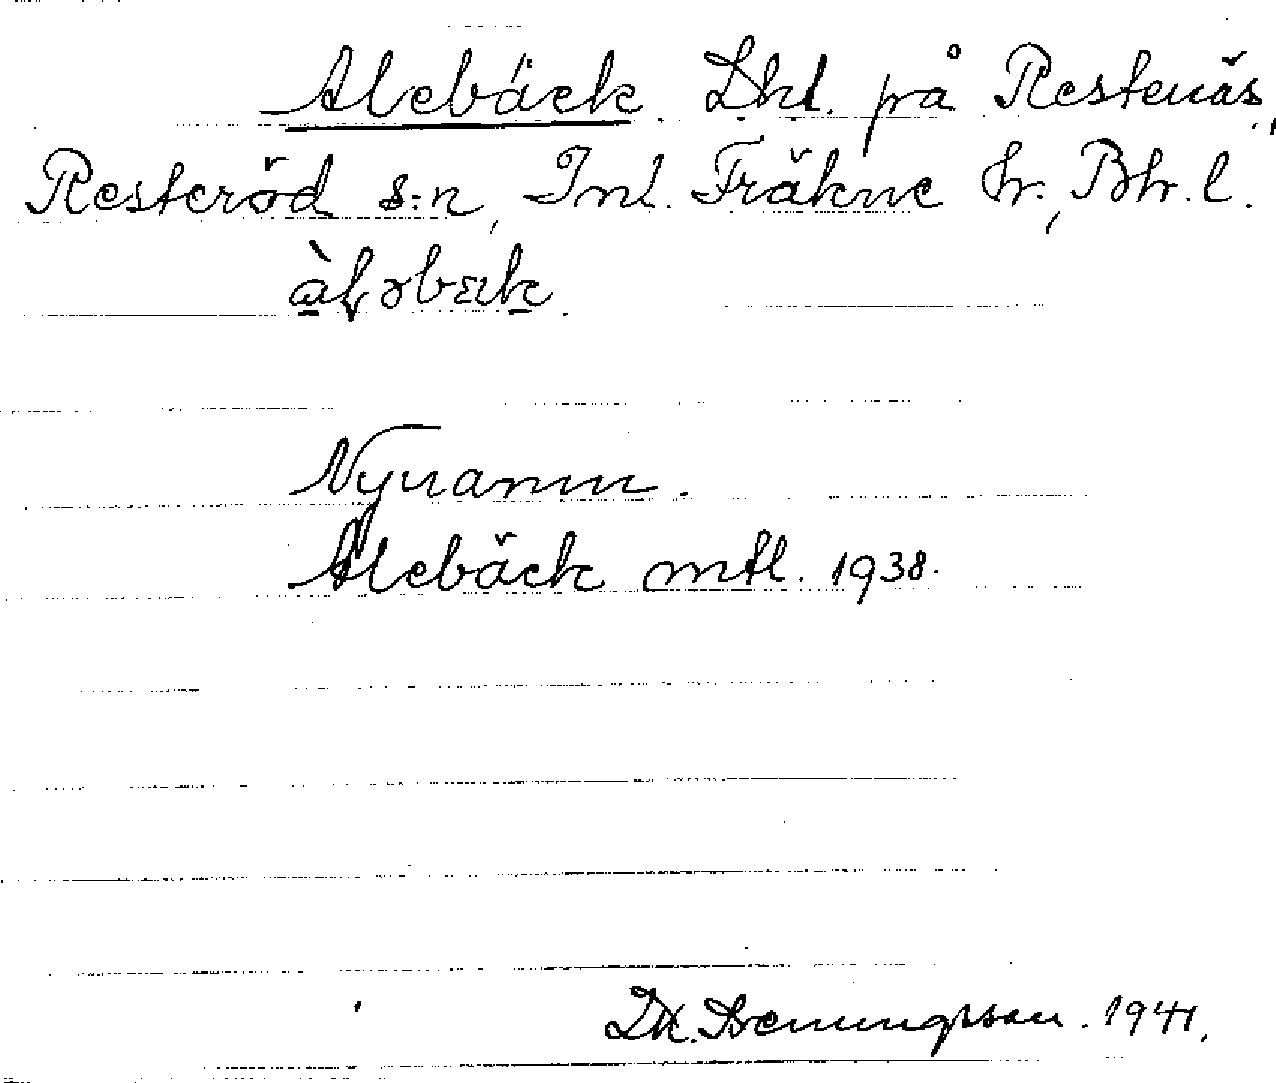 Alebäck. Lht. på Restenäs,
Resteröd s:n, Inl. Fräkne hr., Bh. l.
Nynamn.
Alebäck mtl. 1938.
1941.